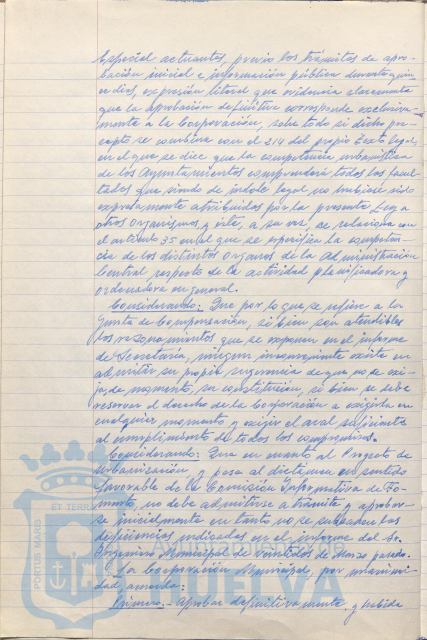 Especial actuantes, previo los trámites de apro-
bación inicial e información pública durante quin-
ce días, expresión literal que evidencia claramente
que la aprobación definitiva corresponde exclusiva-
mente a la Corporación, sobre todo si dicho pre-
cepto se combina con el 214 del propio Texto legal,
en el que se dice que la competencia urbanística
de los Ayuntamientos comprenderá todas las facul-
tades que siendo de índole local no hubiesen sido
expresamente atribuidas por la presente Ley a
otros Organismos, y éste, a su vez, se relaciona con
el artículo 35 en el que se especifica la competen-
cia de los distintos órganos de la Administración
Central respecto de la actividad planificadora y
ordenadora en general.
Considerando: Que por lo que se refiere a la
Junta de Compensación, si bien son atendibles
los razonamientos que se exponen en el informe
de Secretaría, ningún inconveniente existe en
admitir su propia sugerencia de que no se exi-
ja, de momento, su constitución, si bien se debe
reservar el derecho de la Corporación a exigirla en
cualquier momento y exigir el aval suficiente
al cumplimiento de todos los compromisos.
Considerando: Que en cuanto al Proyecto de
urbanización, y pese al dictamen en sentido
favorable de la Comisión Informativa de Fo-
mento, no debe admitirse a trámite y aprobar-
se inicialmente en tanto no se subsanen las
deficiencias indicadas en el informe del Sr.
Ingeniero Municipal de veintidós de Marzo pasado.
La Corporación Municipal, por unanimi-
dad, acuerda:
Primero.- Aprobar definitivamente y
PORTUS MARIS
ET TERRAE
HUELVA